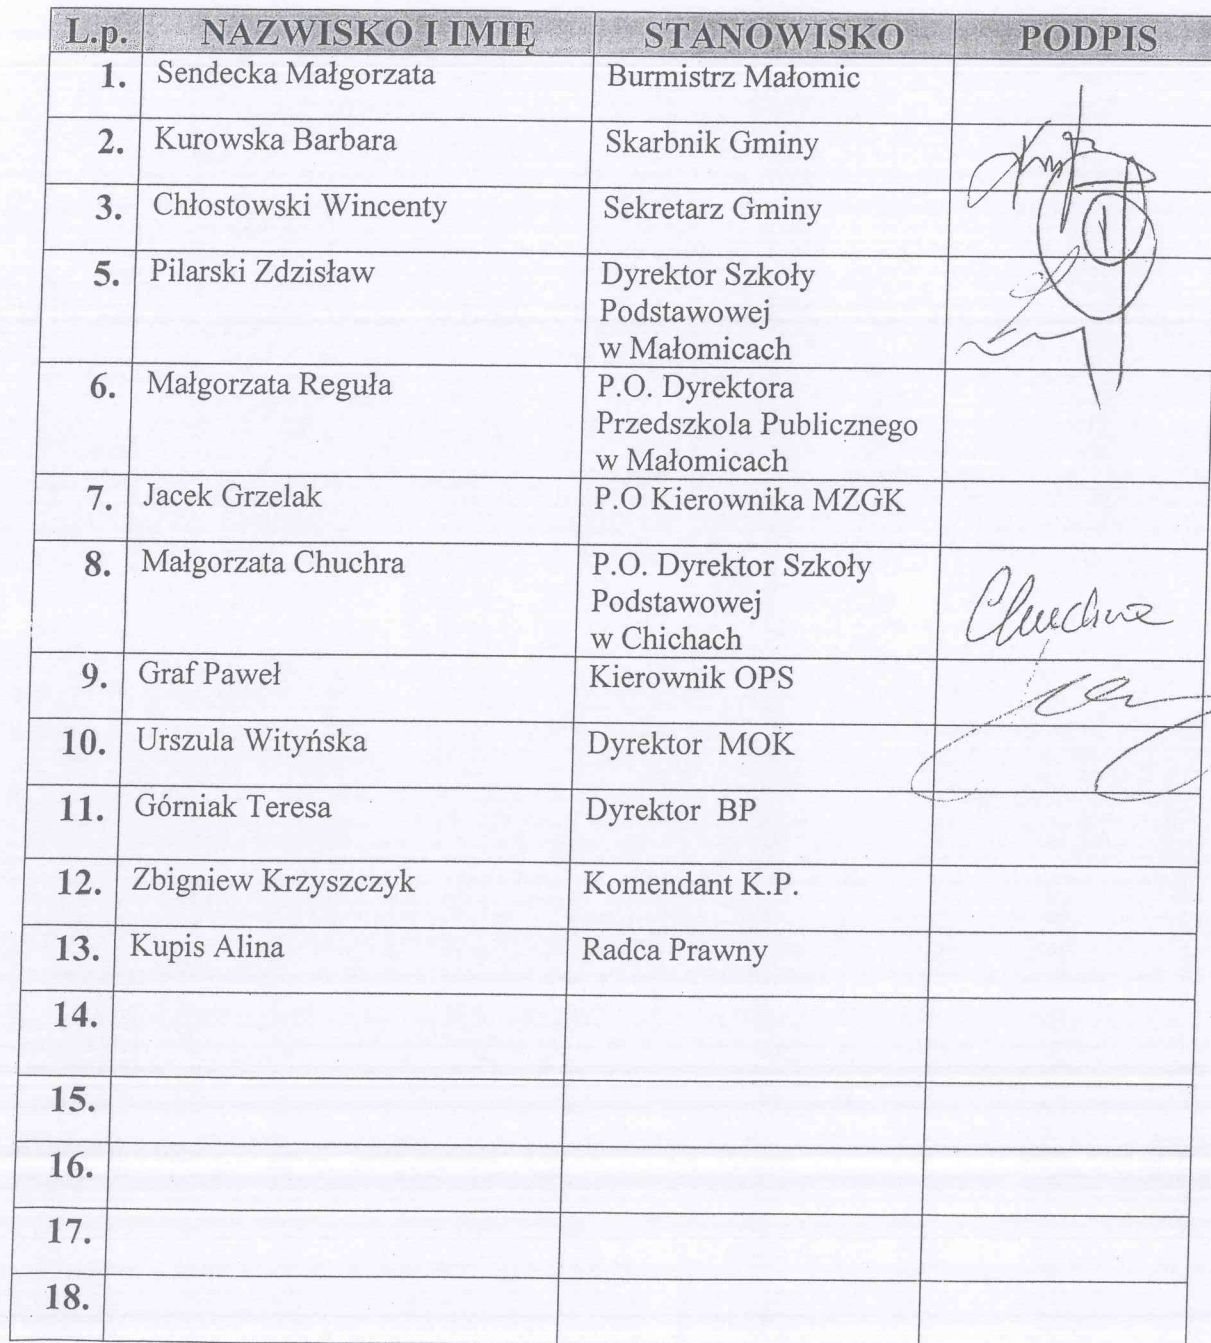 L.p. NAZWISKO I IMIĘ STANOWISKO PODPIS
1. Sendecka Małgorzata Burmistrz Małomic
2. Kurowska Barbara Skarbnik Gminy
3. Chłostowski Wincenty Sekretarz Gminy
5. Pilarski Zdzisław Dyrektor Szkoły
Podstawowej
w Małomicach
6. Małgorzata Reguła P.O. Dyrektora
Przedszkola Publicznego
w Małomicach
7. Jacek Grzelak P.O Kierownika MZGK
8. Małgorzata Chuchra P.O. Dyrektor Szkoły
Podstawowej
w Chichach
Chuchra
9. Graf Paweł Kierownik OPS
10. Urszula Wityńska Dyrektor MOK
11. Górniak Teresa Dyrektor BP
12. Zbigniew Krzyszczyk Komendant K.P.
13. Kupis Alina Radca Prawny
14.
15.
16.
17.
18.